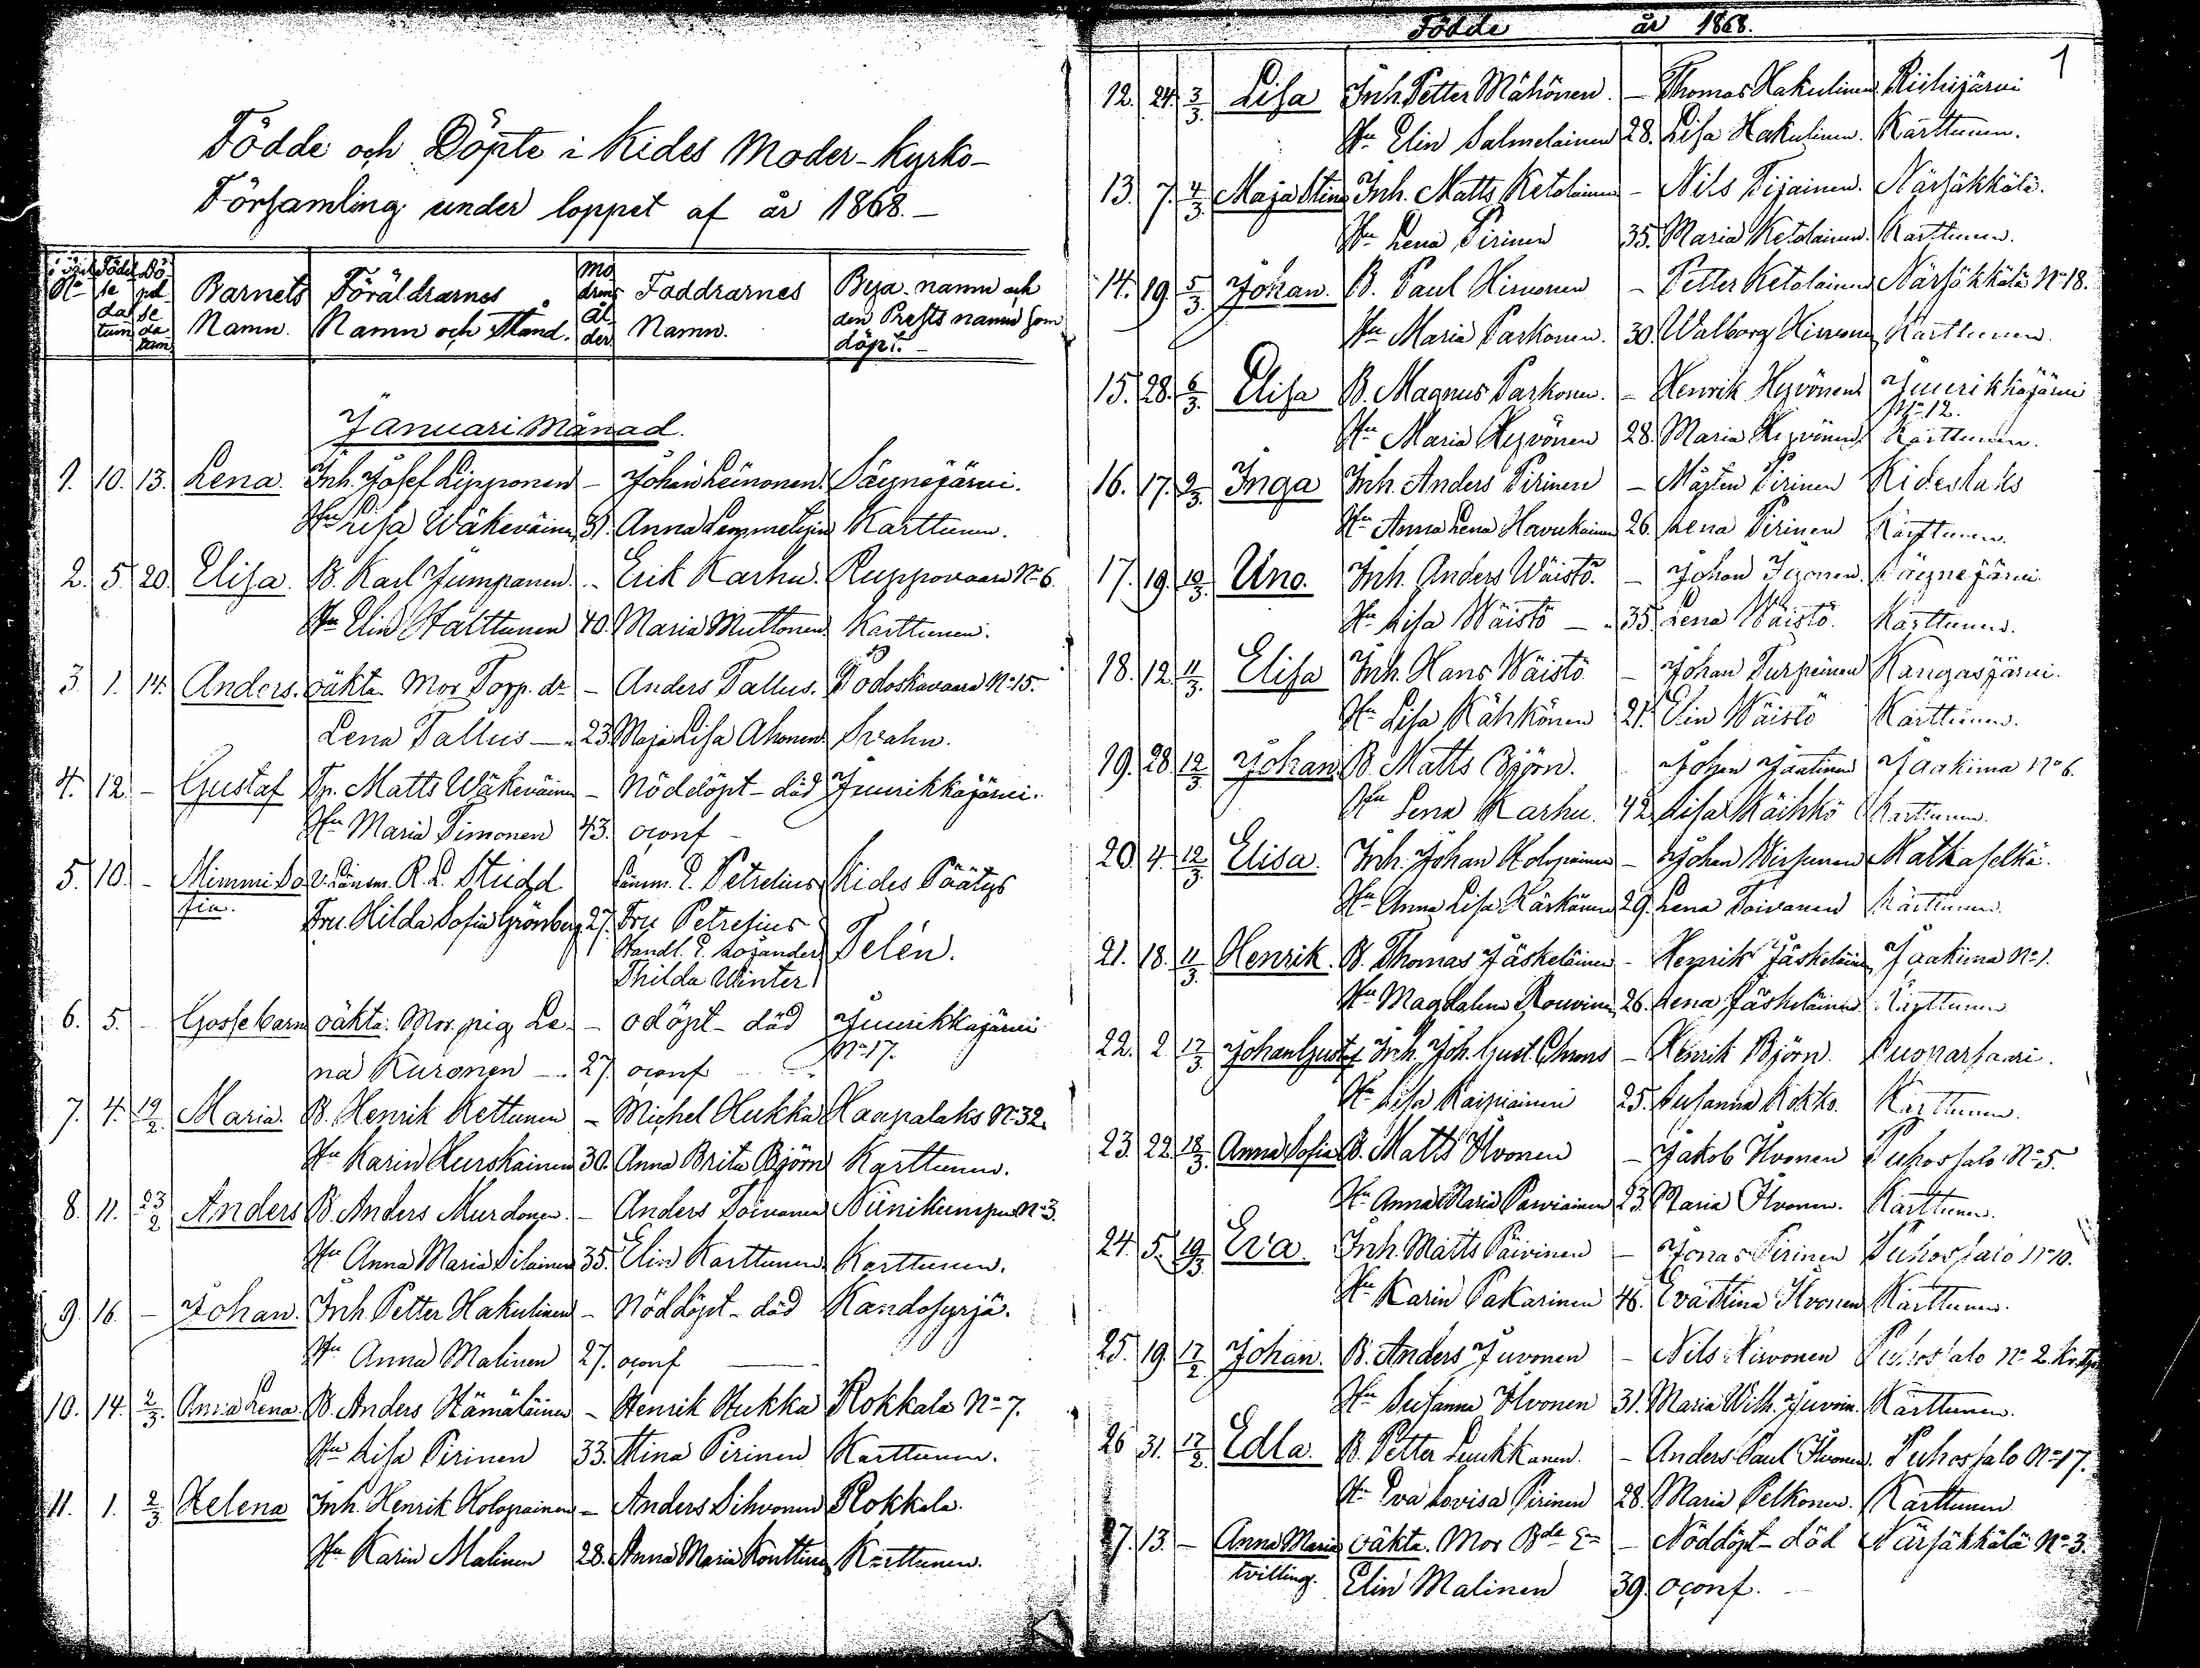 Födde och Döpte i Kides Moder-Kyrko-
Församling under loppet af år 1868.-
Barnets Namn. Föräldrarnes Namn och Stånd. Mo drens ål der Faddrarnes Namn. Bya namn och den Prests namn som döpt.-
Januari Månad.
1. 10. 13. Lena. Inh. Josef Lipponen - Johan Leinonen. Säynejärvi.
Hu Lisa Wäkeväinen 31. Anna Karttunen.
2. 5. 20. Elisa. B. Karl Jumpanen. - Erik Karhu. Ruppovaara No 6.
Hu Elin Stalttunen 40. Maria Muttonen Karttunen.
3. 1. 14. Anders. oäkta. Mor Torp. dr. - Anders Tallus. Podoskavaara No 15.
Lena Tallus - 23. Maja Lisa Ahonen Svahn.
4. 12. - Gustaf Tp. Matts Wäkeväinen - Nöddöpt - död Juurikkajärvi.
Hu Maria Simonen 43. oconf -
5. 10. - Mimmi So R. L. Petrelius Kides Päätys
fia. Fru Hilda Sofia Grönberg 27. Fru Petrelius
Handl. Telén.
Thilda Winter
6. 5. - Gossebarn oäkta. Mor. pig. Le- - odöpt - död Juurikkajärvi
No 17.
na Kuronen - 27. oconf
7. 4. 19/2 Maria. B. Henrik Kettunen - Michel Hukka Haapalaks No 32.
Hu Karin Hurskainen 30. Anna Brita Björn Karttunen.
8. 11. 23/2 Anders B. Anders Murdonen. - Anders Toivanen Niinikumpu No 3.
Hu Anna Maria Silainen 35. Elin Karttunen Karttunen.
9. 16. - Johan. Inh. Petter Hakulinen - Nöddöpt - död Kandosyrjä.
Hu Anna Malinen 27. oconf -
10. 14. 2/3. Anna Lena. B. Anders Hämäläinen - Henrik Hukka Rokkala No 7.
Hu Lisa Pirinen 33. Stina Pirinen Karttunen.
11. 1. 2/3 Helena Inh. Henrik Holopainen - Anders Sihvonen Rokkala.
Hu Karin Malinen 28. Anna Maria Konttinen Karttunen.
Födde år 1868.
1
12. 24. 3/3 Lisa Inh. Petter Mähönen. - Thomas Hakulinen Riihijärvi
Hu Elin Salmelainen 28. Lisa Hakulinen. Karttunen.
13. 7. 4/3 Maja Stina Inh. Matts Ketolainen - Nils Tijainen. Närsäkkälä.
Hu Lena Pirinen 35. Maria Ketolainen. Karttunen.
14. 19. 5/3 Johan. B. Paul Hirvonen - Petter Ketolainen Närsäkkälä No 18.
Hu Maria Parkonen. 30. Walborg Hirvonen Karttunen.
15. 28. 6/3. Elisa B. Magnus Parkonen. - Henrik Heyvönen Juurikkajärvi
No 12.
Hu Maria Heyvönen 28. Maria Heyvönen Karttunen.
16. 17. 9/3. Inga Inh. Anders Pirinen - Mårten Pirinen Kideslaks
Hu Anna Lena Havukainen 26. Lena Pirinen Karttunen.
17. 19. 10/3. Uno. Inh. Anders Wäistö. - Johan Säynejärvi.
Hu Lisa Wäistö - 35. Lena Wäistö. Karttunen.
18. 12. 11/3. Elisa Inh. Hans Wäistö - Johan Turpeinen Kangasjärvi.
Hu Lisa Kähkönen 21. Elin Wäistö Karttunen.
19. 28. 12/3 Johan. B. Matts Björn. Johan Jaatinen Jaakima No 6.
Hu Lena Karhu. 42. Lisa Käihkö Karttunen.
20. 4. 12/3 Elisa. Inh. Johan Holopainen - Johan Wirsunen Matkaselkä.
Hu Anna Lisa Kärkäinen 29. Lena Toivanen Karttunen.
21. 18. 11/3. Henrik. B. Thomas Jäskeläinen - Henrik Jäskeläinen Jaakima No 1.
Hu Magdalena Rouvinen 26. Lena Jäskeläinen Karttunen
22. 2 17/3 Johan Gustaf Inh. Joh. Gust. Chrons - Henrik Björn. Suonarsaari.
Hu Lisa Kaipiainen 25. Susanna Kokko. Karttunen.
23. 22. 18/3. Anna Sofia B. Matts Ihvonen - Jakob Ihvonen Puhossalo No 5.
Hu Anna Maria Parviainen 23. Maria Ihvonen. Karttunen.
24. 5. 19/3. Eva. Inh. Matts Päivinen - Jonas Pirinen Puhossalo No 10.
Hu Karin Pakarinen 46. Eva Stina Ihvonen Karttunen.
25. 19. 17/2 Johan. B. Anders Juvonen - Nils Hirvonen Puhossalo No 2.
Hu Susanna Ihvonen 31. Maria Wilh. Juvonen. Karttunen.
26 31. 17/2. Edla. B. Petter Luukkanen. - Anders Paul Ihvonen. Puhossalo No 17.
Hu Eva Lovisa Pirinen 28. Maria Pelkonen. Karttunen.
27. 13. - Anna Maria oäkta. Mor Bde - Nöddöpt - död Närsäkkälä No 3.
tvilling. Elin Malinen 39. oconf.